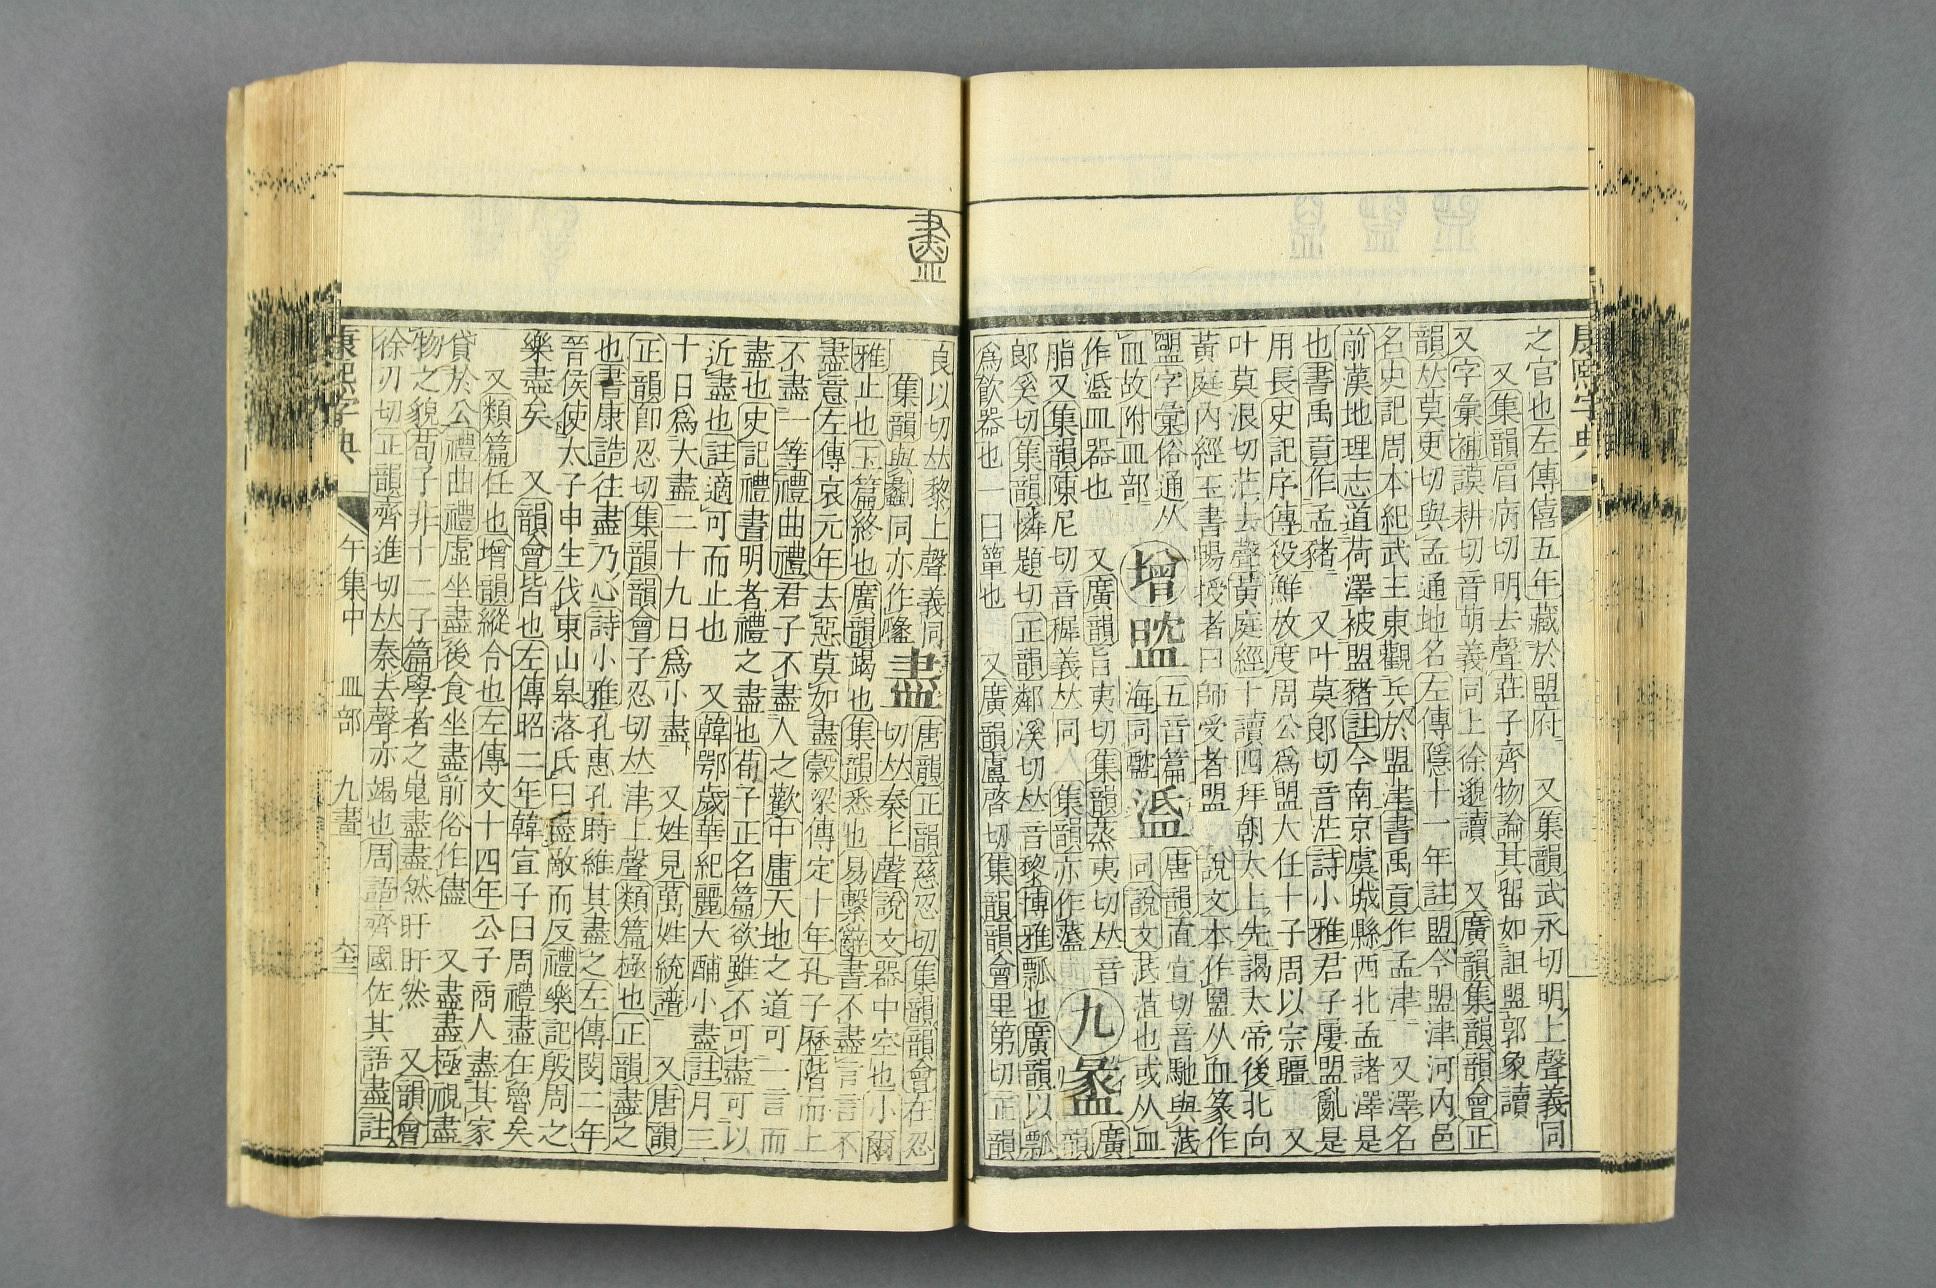 康熙字典
之官也左傳僖五年藏於盟府 又集韻武永切明上聲義同
又集韻眉病切明去聲莊子齊物論其留如詛盟郭象讀
又字彙補謨耕切音萌義同上徐邈讀 又廣韻集韻韻會正
韻𠀤莫更切與孟通地名左傳隱十一年註盟今盟津河內邑
名史記周本紀武王東觀兵於盟津書禹貢作孟津 又澤名
前漢地理志道荷澤被盟豬註今南京虞城縣西北孟諸澤是
也書禹貢作孟豬 又叶莫郎切音茫詩小雅君子屢盟亂是
用長史記序傳役鮮放度周公爲盟大任十子周以宗疆 又
叶莫浪切茫去聲黃庭經十讀四拜朝太上先謁太帝後北向
黃庭內經玉書暢授者曰師受者盟 說文本作 从血篆作
字彙俗通从
血故附皿部
增
五音篇
海同
唐韻直宜切音馳與
同說文 葅也或从血
作 皿器也 又廣韻旨夷切集韻蒸夷切𠀤音
脂又集韻陳尼切音墀義𠀤同 集韻亦作
九
盠
廣
韻
郎奚切集韻憐題切正韻鄰溪切𠀤音黎博雅瓢也廣韻以瓢
爲飮器也一曰簞也 又廣韻盧啓切集韻韻會里第切正韻
盡
良以切𠀤黎上聲義同
集韻與蠡同亦作
盡
唐韻正韻慈忍切集韻韻會在忍
切𠀤秦上聲說文器中空也小爾
雅止也玉篇終也廣韻竭也集韻悉也易繫辭書不盡言言不
盡意左傳哀元年去惡莫如盡穀梁傳定十年孔子歷階而上
不盡一等禮曲禮君子不盡人之歡中庸天地之道可一言而
盡也史記禮書明者禮之盡也荀子正名篇欲雖不可盡可以
近盡也註適可而止也 又韓鄂歲華紀麗大酺小盡註月三
十日爲大盡二十九日爲小盡 又姓見萬姓統譜 又唐韻
正韻卽忍切集韻韻會子忍切𠀤津上聲類篇極也正韻盡之
也書康誥往盡乃心詩小雅孔惠孔時維其盡之左傳閔二年
晉侯使太子申生伐東山皋落氏曰盡敵而反禮樂記殷周之
樂盡矣 又韻會皆也左傳昭二年韓宣子曰周禮盡在魯矣
又類篇任也增韻縱令也左傳文十四年公子商人盡其家
貸於公禮曲禮虛坐盡後食坐盡前俗作儘 又盡盡極視盡
物之貌荀子非十二子篇學者之嵬盡盡然盱盱然 又韻會
徐刃切正韻齊進切𠀤秦去聲亦竭也周語齊國佐其語盡註
康熙字典 午集中 皿部 九畫